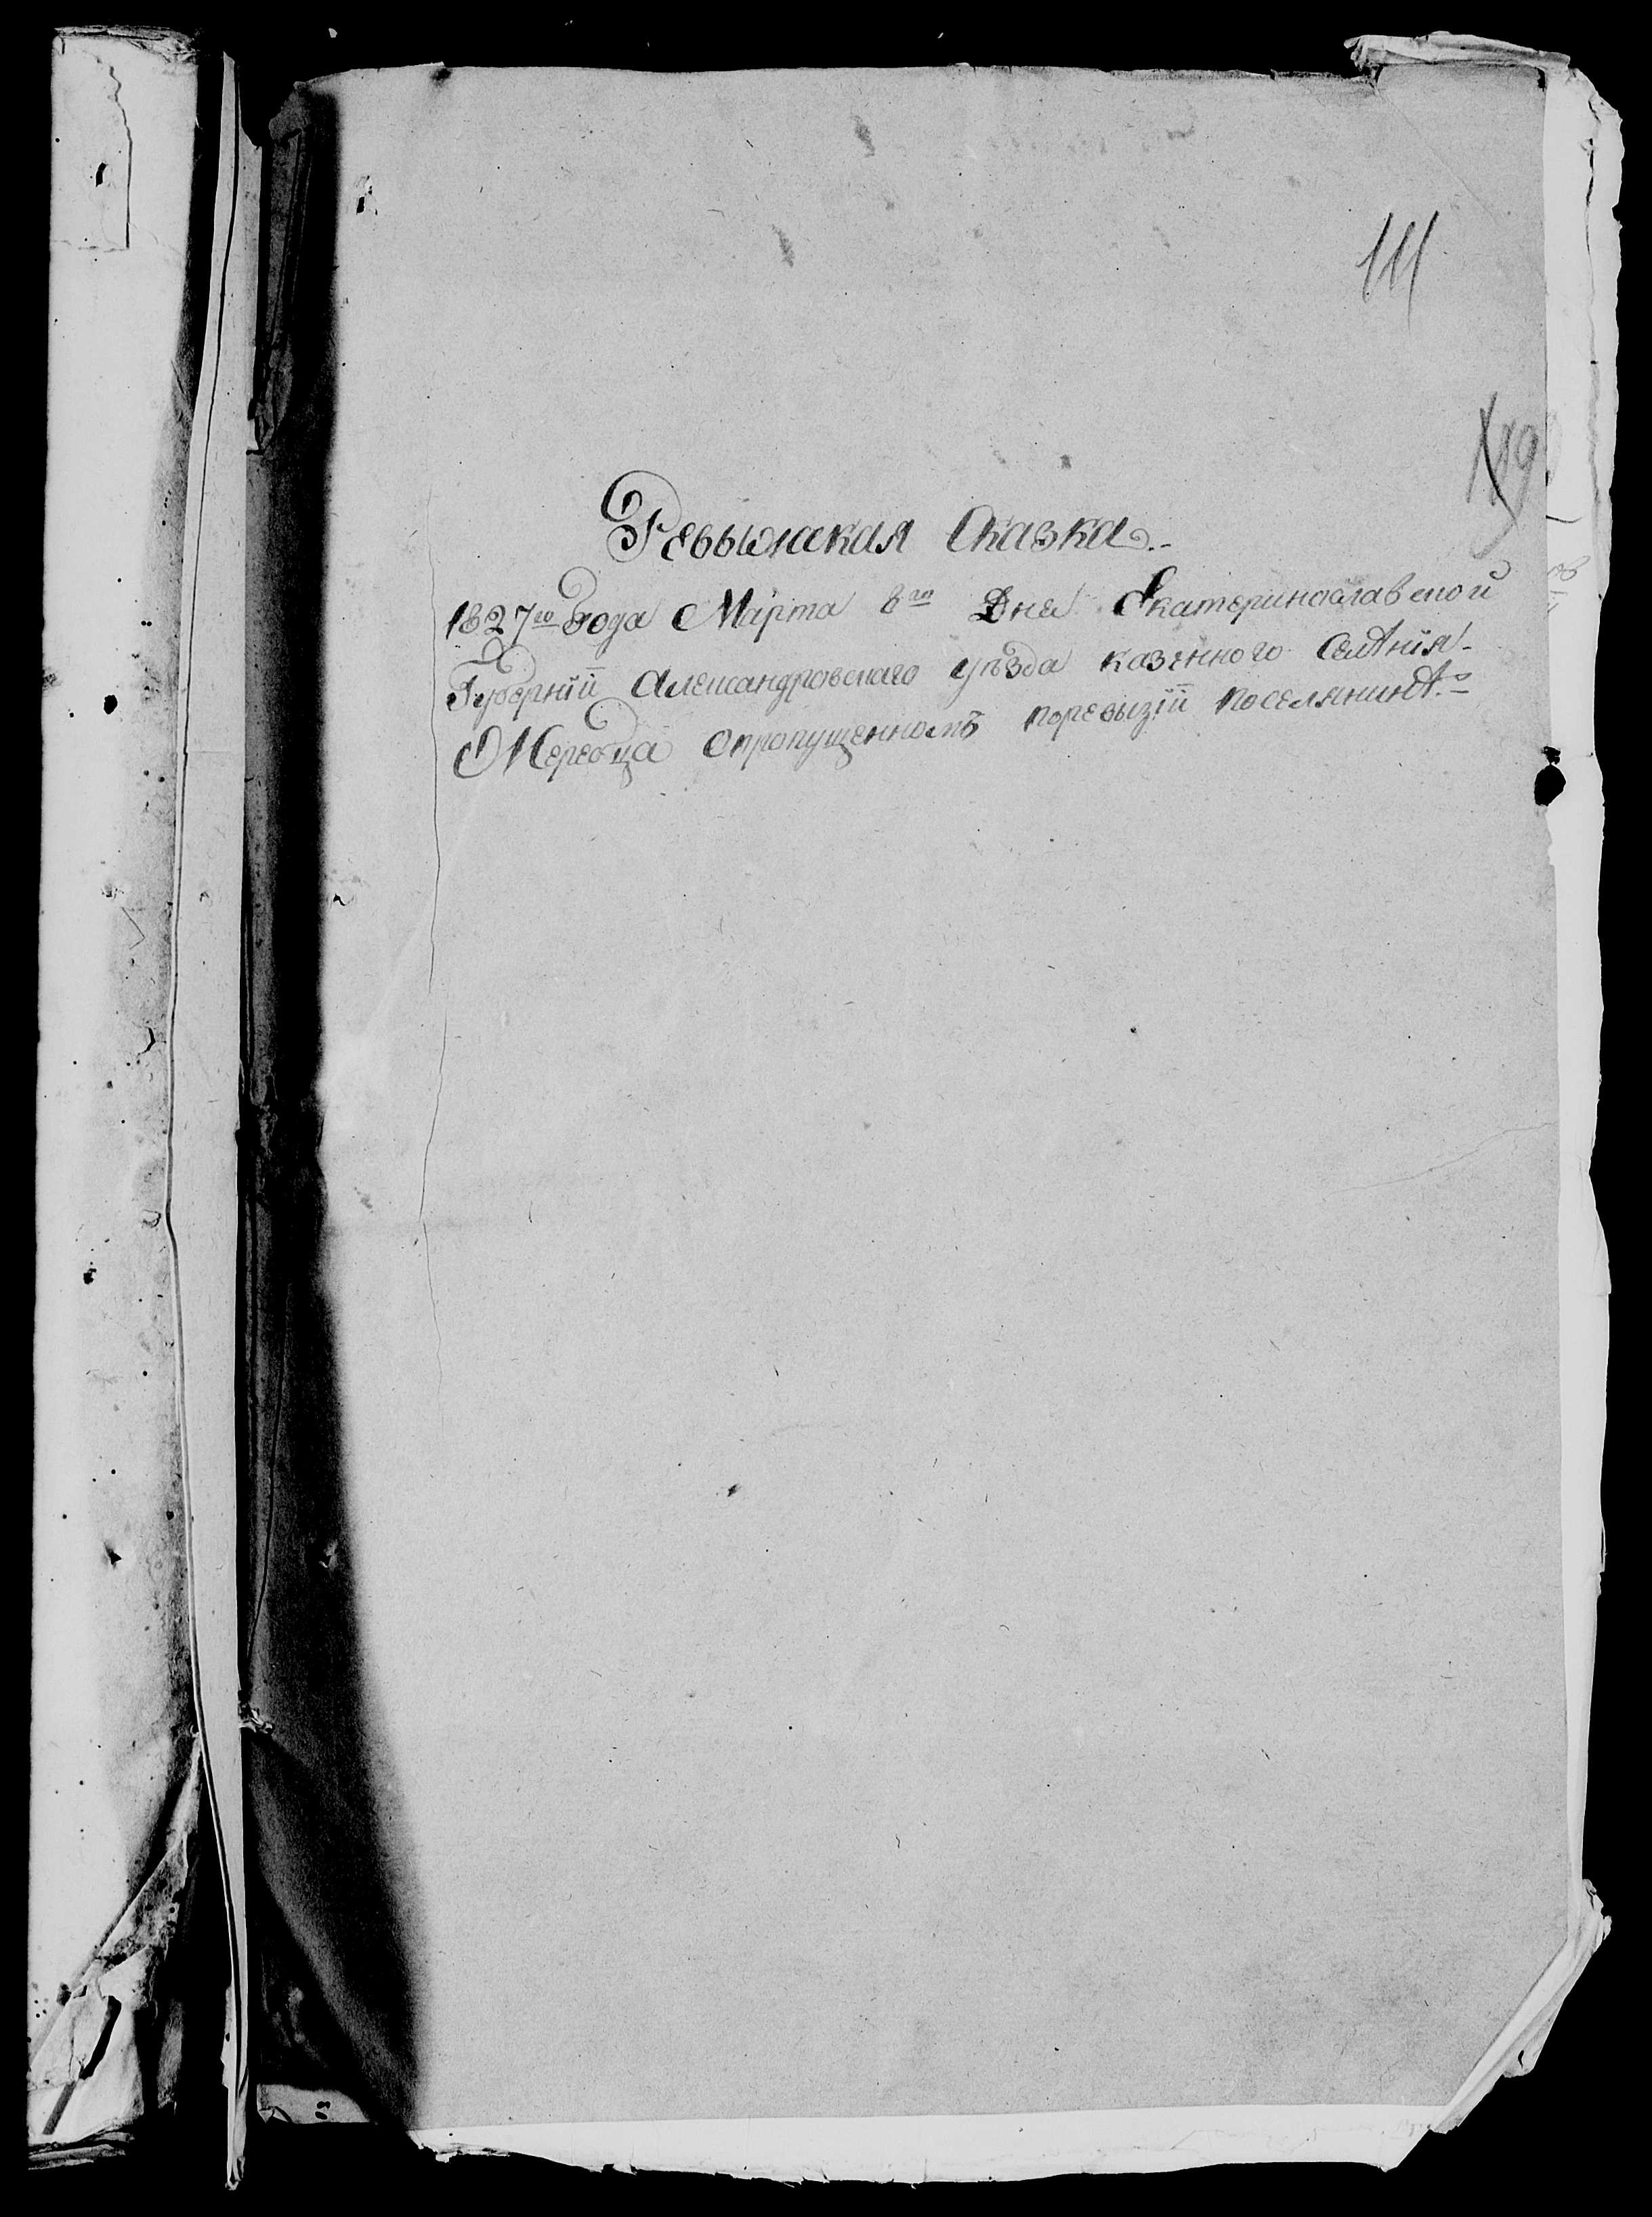 111
119
Ревызская Сказка.-
1827го Года Марта 8го Дня Екатеринославской
Губерніи Александровскаго уѣзда казенного Селѣнія-
Жеребца опропущенномъ поревызіи поселянинѣ.-